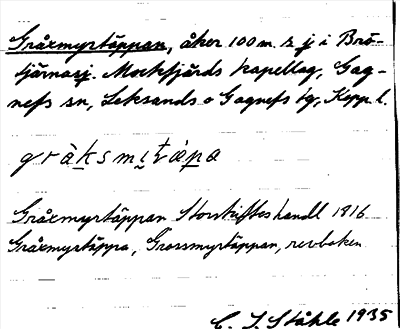 Gråxmyrtäppan, åker 100 m. s. j i Brö-
tjärnasj. Mockfjärds kapellag, Gag-
nefs sn, Leksands o Gagnefs tg, Kopp. l.
gråksmitäpa
Gråxmyrtäppan Storskifteshandl 1816
Gråxmyrtäppa, Grossmyrtäppan, revboken
C. I. Ståhle 1935